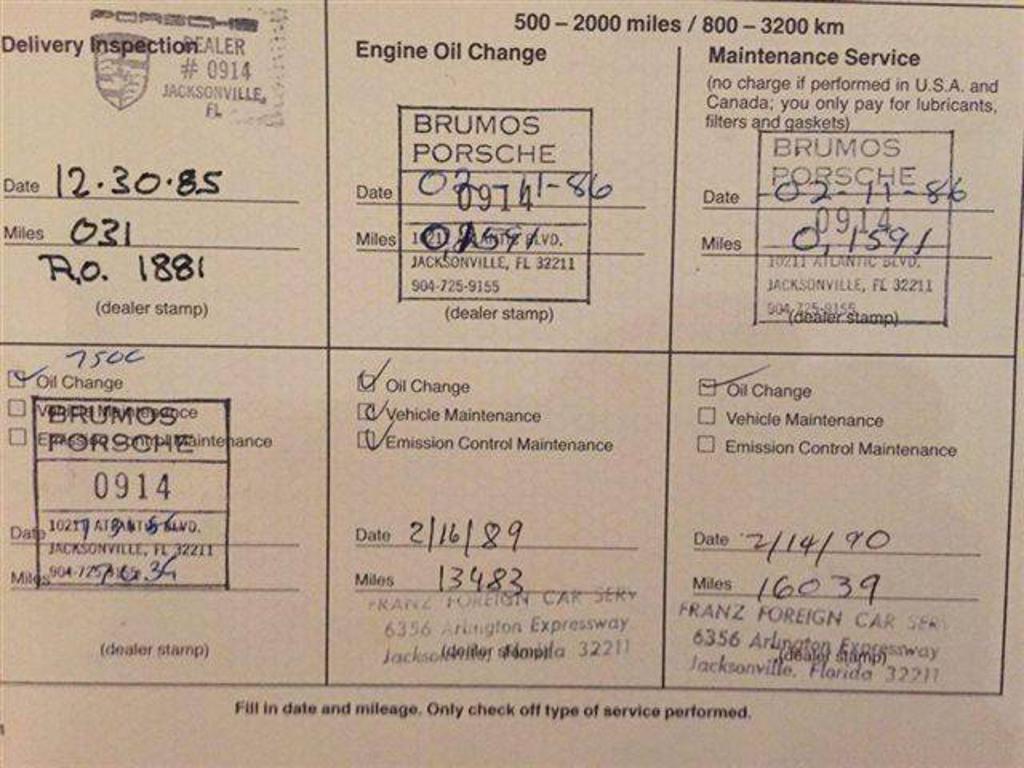 500 – 2000 miles / 800 – 3200 km
PORSCHE
Delivery Inspection
DEALER
# 0914
JACKSONVILLE,
FL
Date 12.30.85
Miles 031
R.O. 1881
(dealer stamp)
Engine Oil Change
BRUMOS
PORSCHE
0914
Date 02-11-86
Miles 0,1591
10211 ATLANTIC BLVD.
JACKSONVILLE, FL 32211
904-725-9155
(dealer stamp)
Maintenance Service
(no charge if performed in U.S.A. and
Canada; you only pay for lubricants,
filters and gaskets)
BRUMOS
PORSCHE
Date 02-11-86
0914
Miles 0,1591
10211 ATLANTIC BLVD.
JACKSONVILLE, FL 32211
904-725-9155
(dealer stamp)
7500
Oil Change
Vehicle Maintenance
Emission Control Maintenance
BRUMOS
PORSCHE
0914
10211 ATLANTIC BLVD.
Date
JACKSONVILLE, FL 32211
Miles
904-725-9155
(dealer stamp)
Oil Change
Vehicle Maintenance
Emission Control Maintenance
Date 2/16/89
Miles 13483
FRANZ FOREIGN CAR SERV
6356 Arlington Expressway
Jacksonville, Florida 32211
(dealer stamp)
Oil Change
Vehicle Maintenance
Emission Control Maintenance
Date 2/14/90
Miles 16039
FRANZ FOREIGN CAR SER
6356 Arlington Expressway
(dealer stamp)
Jacksonville, Florida 32211
Fill in date and mileage. Only check off type of service performed.